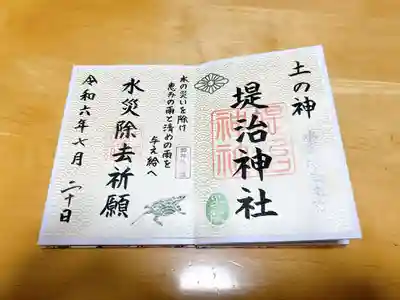 土の神
堤治神社
水の災いを除け
恵みの雨と清めの雨を
与え給へ
水災除去祈願
令和六年七月二十日